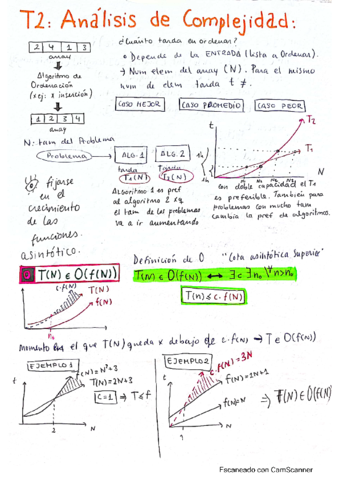 T2: Análisis de Complejidad:
¿Cuánto tarda en ordenar?
2 4 1 3
array
• Depende de la ENTRADA (lista a Ordenar).
→ Num elem del array (N). Para el mismo
num de elem tarda t ≠.
Algoritmo de
Ordenación
(xej: x inserción)
CASO MEJOR
CASO PROMEDIO
CASO PEOR
1 2 3 4
array
N: tam del Problema
Problema
ALG. 1
ALG. 2
tarda
T1(N)
T2(N)
t
T2
T1
N
fijarse
en el
crecimiento
de las
funciones.
asintótico.
Algoritmo 1 es pref
al algoritmo 2 xq
el tam de los problemas
va a ir aumentando
con doble capacidad el T1
es preferible. También para
problemas con mucho tam
cambia la pref de algoritmos.
Definición de O "Cota asintótica superior"
T(N) ∈ O(f(N))
T(N) ∈ O(f(N)) ↔ ∃c ∃n0 ∀n>n0
T(n) ≤ c·f(N)
c·f(N)
T(N)
f(N)
n0
Momento en el que T(N) queda x debajo de c·f(N) → T ∈ O(f(N))
EJEMPLO 1
t
f(N)=N²+3
T(N)=2N+3
C=1 ⇒ T≤f
2
N
EJEMPLO 2
t
c·f(N)=3N
f(N)=N
⇒ T(N) ∈ O(f(N))
N
Escaneado con CamScanner